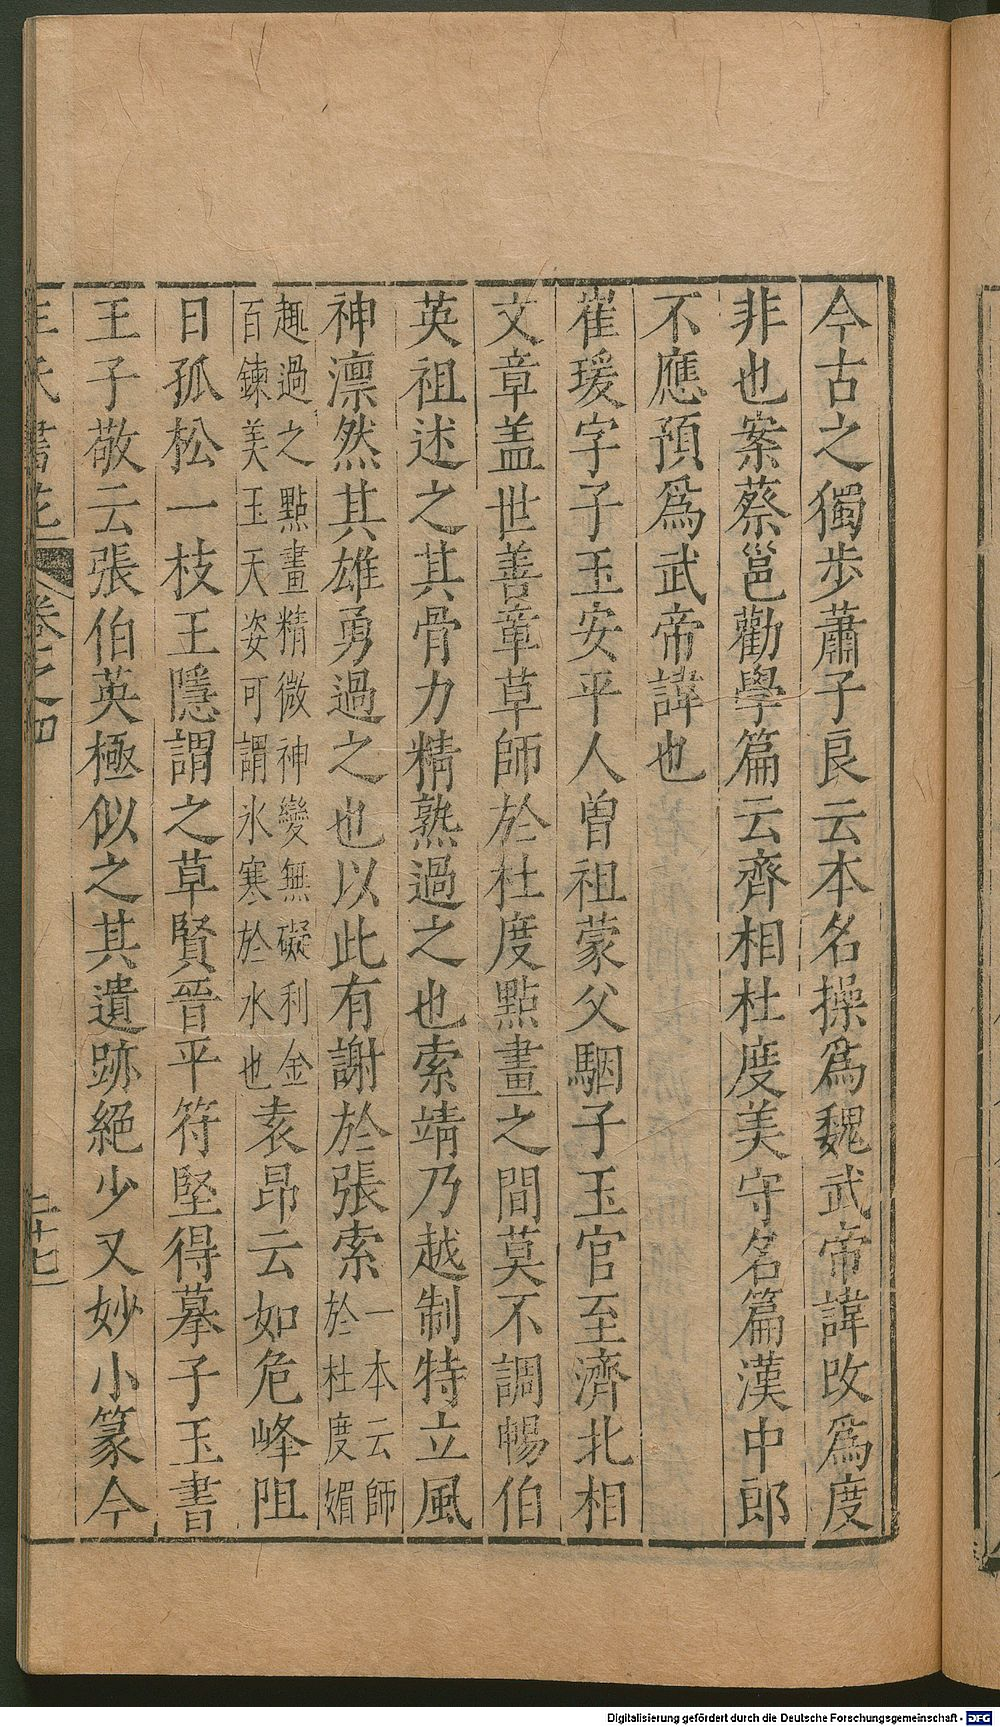 今古之獨步蕭子良云本名操爲魏武帝諱改爲度
非也案蔡邕勸學篇云齊相杜度美守名篇漢中郎
不應預爲武帝諱也
崔瑗字子玉安平人曽祖蒙父駰子玉官至濟北相
文章盖世善章草師於杜度點畫之間莫不調暢伯
英祖述之其骨力精熟過之也索靖乃越制特立風
神凛然其雄勇過之也以此有謝於張索一本云師於杜度媚
趣過之點畫精微神變無礙利金百鍊美玉天姿可謂氷寒於水也袁昂云如危峰阻
日孤松一枝王隱謂之草賢晉平符堅得摹子玉書
王子敬云張伯英極似之其遺跡絕少又妙小篆今
王氏書苑 卷之四 二十七
Digitalisierung gefördert durch die Deutsche Forschungsgemeinschaft - DFG